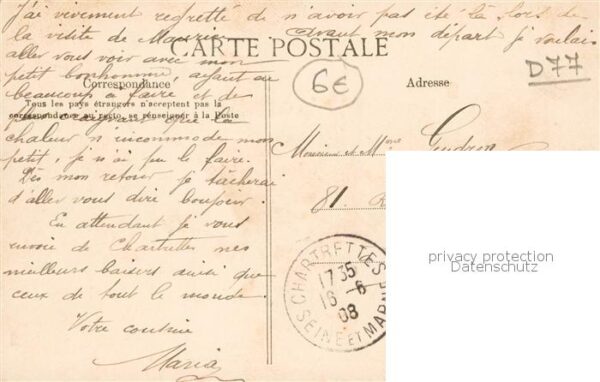 J'ai vivement regretté de n'avoir pas été là lors de
la visite de Maurice. Avant mon départ je voulais
CARTE POSTALE
aller vous voir avec mon
petit bonhomme, ayant
Correspondance
Adresse
6€
D77
beaucoup à faire et de
Tous les pays étrangers n'acceptent pas la
correspondance au recto, se renseigner à la Poste
plus craignant que la
chaleur n'incommode mon
petit, je n'ai pu le faire.
Dès mon retour je tâcherai
d'aller vous dire bonjour.
En attendant je vous
envoie de Chartrettes mes
meilleurs baisers ainsi que
ceux de tout le monde.
Votre cousine
Maria
Monsieur et Mme
81
CHARTRETTES
17 35
16 - 6
08
SEINE ET MARNE
privacy protection
Datenschutz